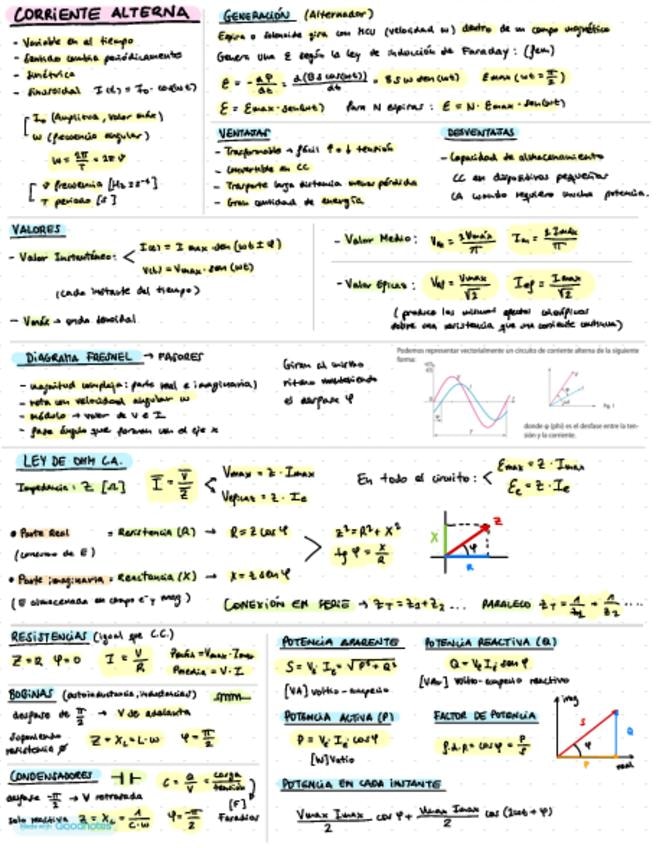 CORRIENTE ALTERNA
- Variable en el tiempo
- Sentido cambia periódicamente
- Simétrica
- Sinusoidal I(t) = I₀ · cos(ωt)
I₀ (Amplitud, valor máx)
ω (frecuencia angular)
ω = 2π/T = 2πν
ν frecuencia [Hz ≡ s⁻¹]
T periodo [s]
GENERACIÓN (Alternador)
Espira o solenoide gira con MCU (velocidad ω) dentro de un campo magnético
Genera una ε según la ley de inducción de Faraday: (fem)
ε = -dφ/dt = d(BS cos(ωt))/dt = BSω sen(ωt) εmax (ωt = π/2)
ε = εmax · sen(ωt) Para N espiras: ε = N · εmax · sen(ωt)
VENTAJAS
- Trasformable → fácil ↑ o ↓ tensión
- Convertible en CC
- Trasporte larga distancia menor pérdida
- Gran cantidad de energía
DESVENTAJAS
- Capacidad de almacenamiento
CC en dispositivos pequeños
CA cuando requiero mucha potencia.
VALORES
- Valor Instantáneo: < I(t) = I max · sen (ωt ± φ)
V(t) = Vmax · sen (ωt)
(cada instante del tiempo)
- Vmáx → onda senoidal
- Valor Medio: Vm = 2Vmáx/π Im = 2Imáx/π
- Valor eficaz: Vef = Vmax/√2 Ief = Imax/√2
(produce los mismos efectos caloríficos
sobre una resistencia que una corriente continua)
DIAGRAMA FRESNEL → FASORES
- magnitud compleja: parte real e imaginaria)
- rota con velocidad angular ω
- módulo → valor de V e I
- fase ángulo que forman con el eje x
Giran al mismo
ritmo manteniendo
el desfase φ
Podemos representar vectorialmente un circuito de corriente alterna de la siguiente
forma:
Fig. 1
donde φ (phi) es el desfase entre la ten-
sión y la corriente.
LEY DE OHM C.A.
Impedancia: Z [Ω] I = V/Z < Vmax = Z · Imax
Veficaz = Z · Ie
En todo el circuito: < εmax = Z · Imax
εe = Z · Ie
• Parte Real = Resistencia (R) → R = Z cos φ
(consumo de E)
• Parte imaginaria = Reactancia (X) → X = Z sen φ
(E almacenada en campo e⁻ y mag)
> Z² = R² + X²
tg φ = X/R
X Z φ R
CONEXIÓN EN SERIE → ZT = Z1 + Z2 ... PARALELO ZT = 1/Z1 + 1/Z2 ...
RESISTENCIAS (igual que C.C.)
Z = R φ = 0 I = V/R Pmáx = Vmax · Imax
Pmedia = V · I
BOBINAS (autoinductancia, inductancias)
desfase de π/2 → V se adelanta
suponiendo
resistencia ∅ Z = XL = L · ω φ = π/2
CONDENSADORES C = Q/V = carga/tensión
desfase -π/2 → V retrasada [F]
Faradios
solo reactiva Z = Xc = 1/C·ω φ = -π/2
Made with Goodnotes
POTENCIA APARENTE
S = Ve Ie = √P² + Q²
[VA] voltio-amperio
POTENCIA REACTIVA (Q)
Q = Ve Ie sen φ
[VAr] voltio-amperio reactivo
POTENCIA ACTIVA (P)
P = Ve · Ie cos φ
[W] Vatio
FACTOR DE POTENCIA
f.d.p = cos φ = P/S
imag S Q φ P real
POTENCIA EN CADA INSTANTE
Vmax Imax/2 cos φ + Vmax Imax/2 cos (2ωt + φ)